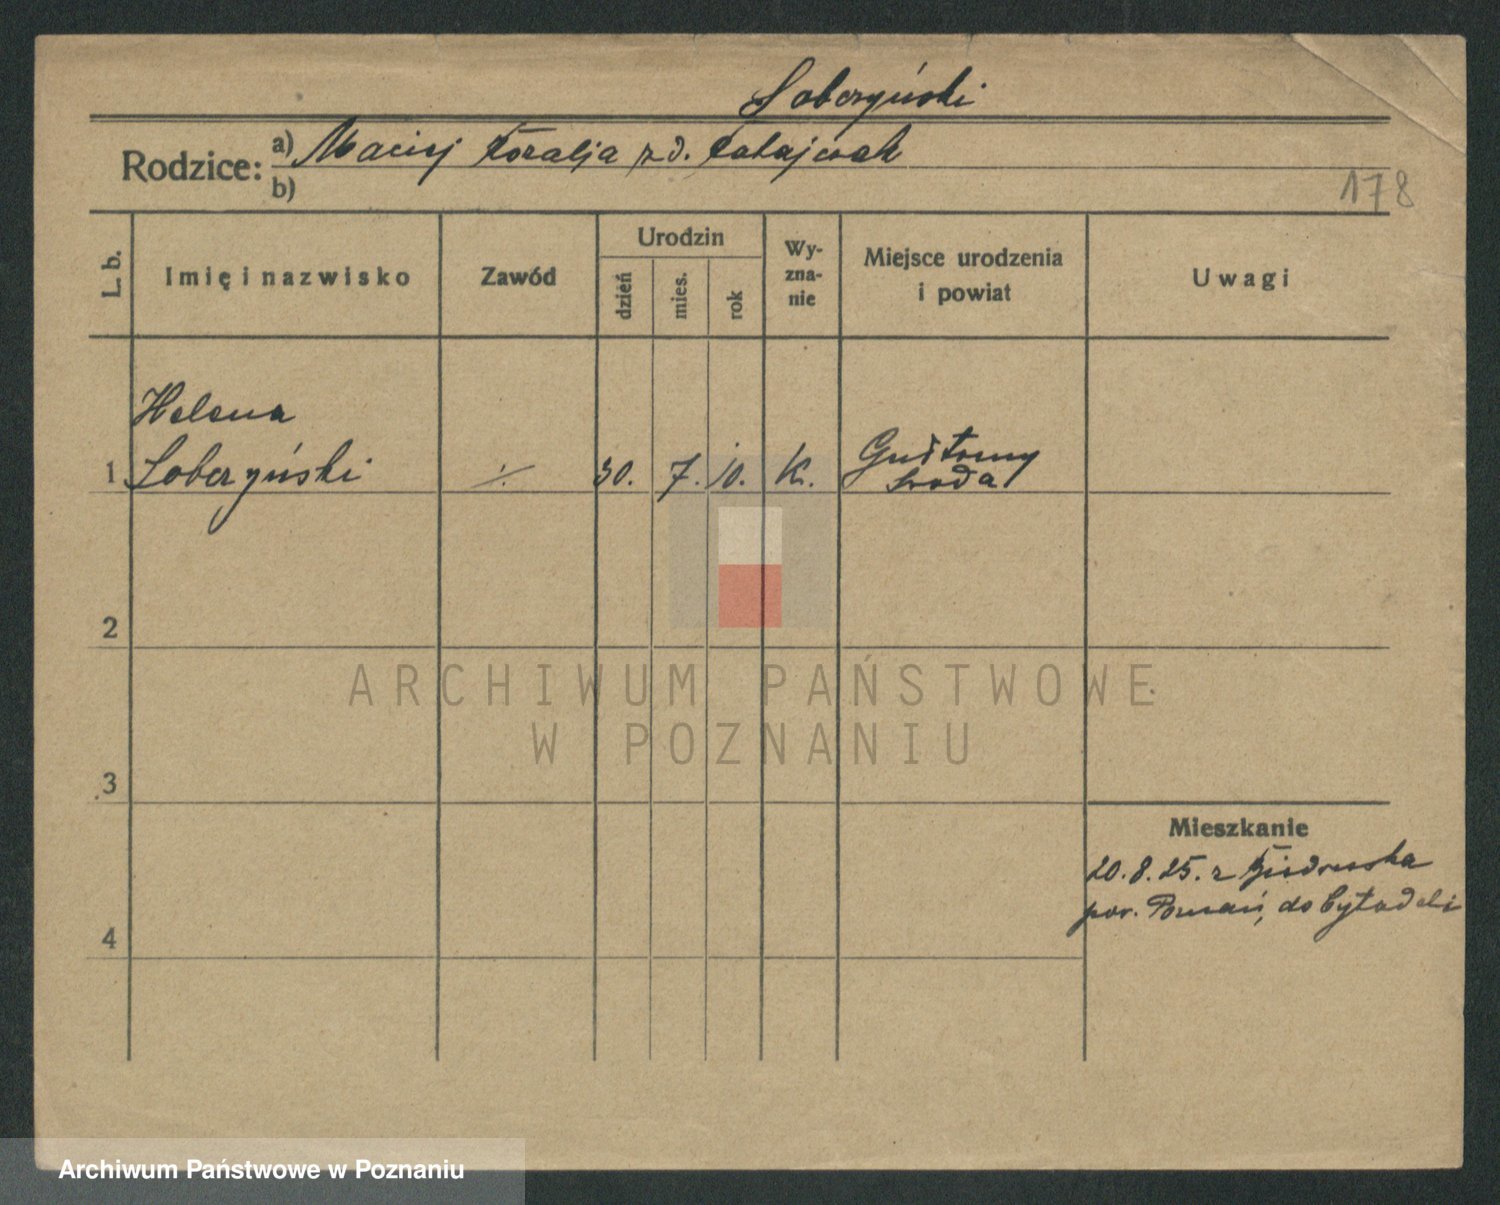 Soberzyński
Rodzice: a) Maciej Rozalja z d. Ratajczak
b)
178
L. b.
Imię i nazwisko
Zawód
Urodzin
dzień
mies.
rok
Wy-
zna-
nie
Miejsce urodzenia
i powiat
Uwagi
Helena
1 Soberzyński ·/· 30. 7. 10. K. Gułtowy
Środa
2
3
4
Mieszkanie
20.8.25. z
pow. Poznań, do Cytadeli
ARCHIWUM PAŃSTWOWE
W POZNANIU
Archiwum Państwowe w Poznaniu